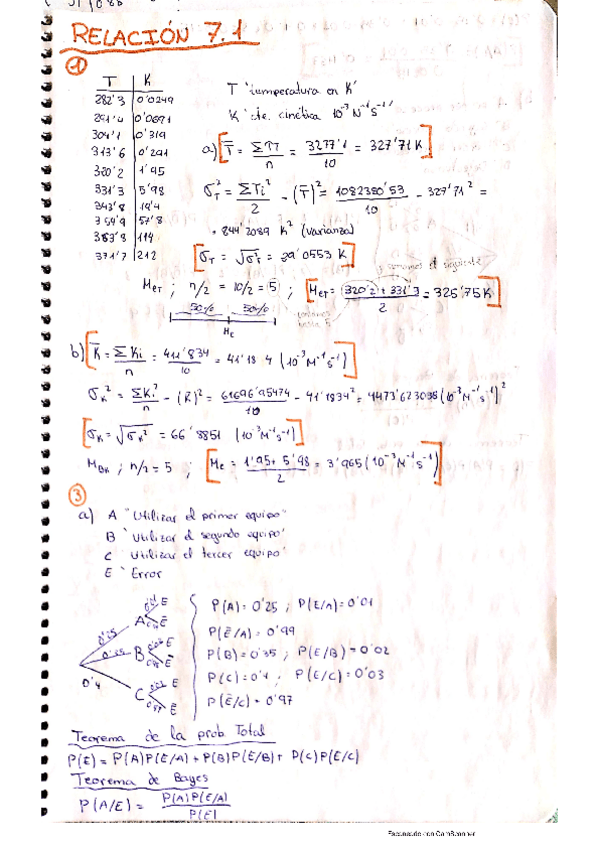 RELACIÓN 7.1
①
T K
282'3 0'0249
291'4 0'0691
304'1 0'319
313'6 0'291
320'2 1'95
331'3 5'98
343'8 19'4
354'9 57'8
363'8 114
371'7 212
T 'temperatura en K'
K 'cte. cinética 10⁻³ M⁻¹ s⁻¹'
a) [T̄ = ΣTi/n = 3277'1/10 = 327'71 K]
σ_T² = ΣTi²/2 - (T̄)² = 1082380'53/10 - 327'71² =
= 844'2089 K² (varianza)
[σ_T = √σ_T² = 29'0553 K]
y sumamos el siguiente
M_eT ; n/2 = 10/2 = 5 ; [M_eT = (320'2 + 331'3)/2 = 325'75 K]
50% 50%
Me
b) [K̄ = ΣKi/n = 411'834/10 = 41'1834 (10⁻³M⁻¹s⁻¹)]
σ_K² = ΣKi²/n - (K̄)² = 61696'95474/10 - 41'1834² = 4473'623038 (10⁻³M⁻¹s⁻¹)²
[σ_K = √σ_K² = 66'8851 (10⁻³M⁻¹s⁻¹)]
n/2 = 5 ; [Me = (1'95 + 5'98)/2 = 3'965 (10⁻³M⁻¹s⁻¹)]
③
a) A "Utilizar el primer equipo"
B 'Utilizar el segundo equipo'
C 'Utilizar el tercer equipo'
E 'Error
0'25 A E Ē
0'35 B E Ē
0'4 C E 0'97 Ē
P(A) = 0'25 ; P(E/A) = 0'01
P(Ē/A) = 0'99
P(B) = 0'35 ; P(E/B) = 0'02
P(C) = 0'4 ; P(E/C) = 0'03
P(Ē/C) = 0'97
Teorema de la prob. Total
P(E) = P(A)P(E/A) + P(B)P(E/B) + P(C)P(E/C)
Teorema de Bayes
P(A/E) = P(A)P(E/A)/P(E)
Escaneado con CamScanner